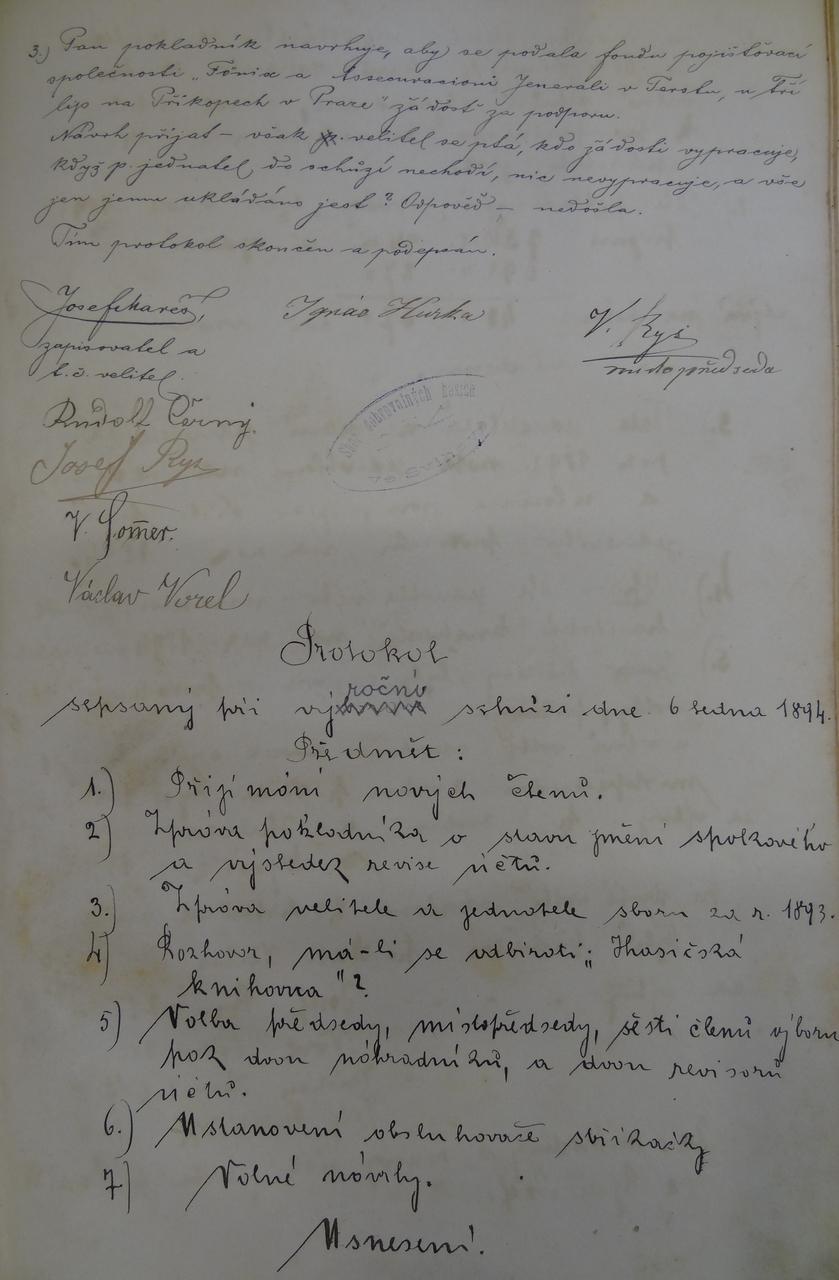 3.) Pan pokladník navrhuje, aby se podala fondu pojišťovací
společnosti „Fönix a Assecuracioni Jenerali v Terstu, u Tří
lip na Příkopech v Praze" žádost za podporu.
Návrh přijat – však p. velitel se ptá, kdo žádosti vypracuje,
když p. jednatel do schůzí nechodí, nic nevypracuje, a vše
jen jemu ukládáno jest? Odpověď – nedošla.
Tím protokol skončen a podepsán.
Josef Mareš,
Ignác Hurka
V. Rys
zapisovatel a
místopředseda
t. č. velitel.
Sbor dobrovolných hasičů
Rudolf Černý.
Josef Rys
V. Somer.
Václav Vorel
Protokol
roční
sepsaný při schůzi dne 6 ledna 1894.
Předmět:
1.) Přijímání nových členů.
2) Zpráva pokladníka o stavu jmění spolkového
a výsledek revise účtů.
3.) Zpráva velitele a jednatele sboru za r. 1893.
4) Rozhovor, má-li se odbírati „Hasičská
knihovna"?
5) Volba předsedy, místopředsedy, šesti členů výboru
pak dvou náhradníků, a dvou revisorů
účtů.
6.) Ustanovení obsluhovače stříkačky
7) Volné návrhy.
Usnesení.